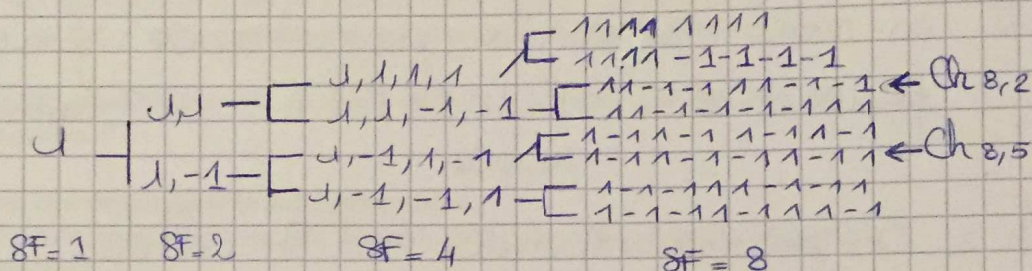 1 1 1 1 1 1 1 1
1,1,1,1
1 1 1 1 -1-1-1-1
1,1
1 1-1-1 1 1-1-1 ← Ch 8,2
1,1,-1,-1
1 1-1-1-1-1 1 1
1
1-1 1-1 1-1 1-1
1,-1,1,-1
1-1 1-1-1 1-1 1 ← Ch 8,5
1,-1
1-1-1 1 1-1-1 1
1,-1,-1,1
1-1-1 1-1 1 1-1
SF=1 SF=2 SF=4 SF=8